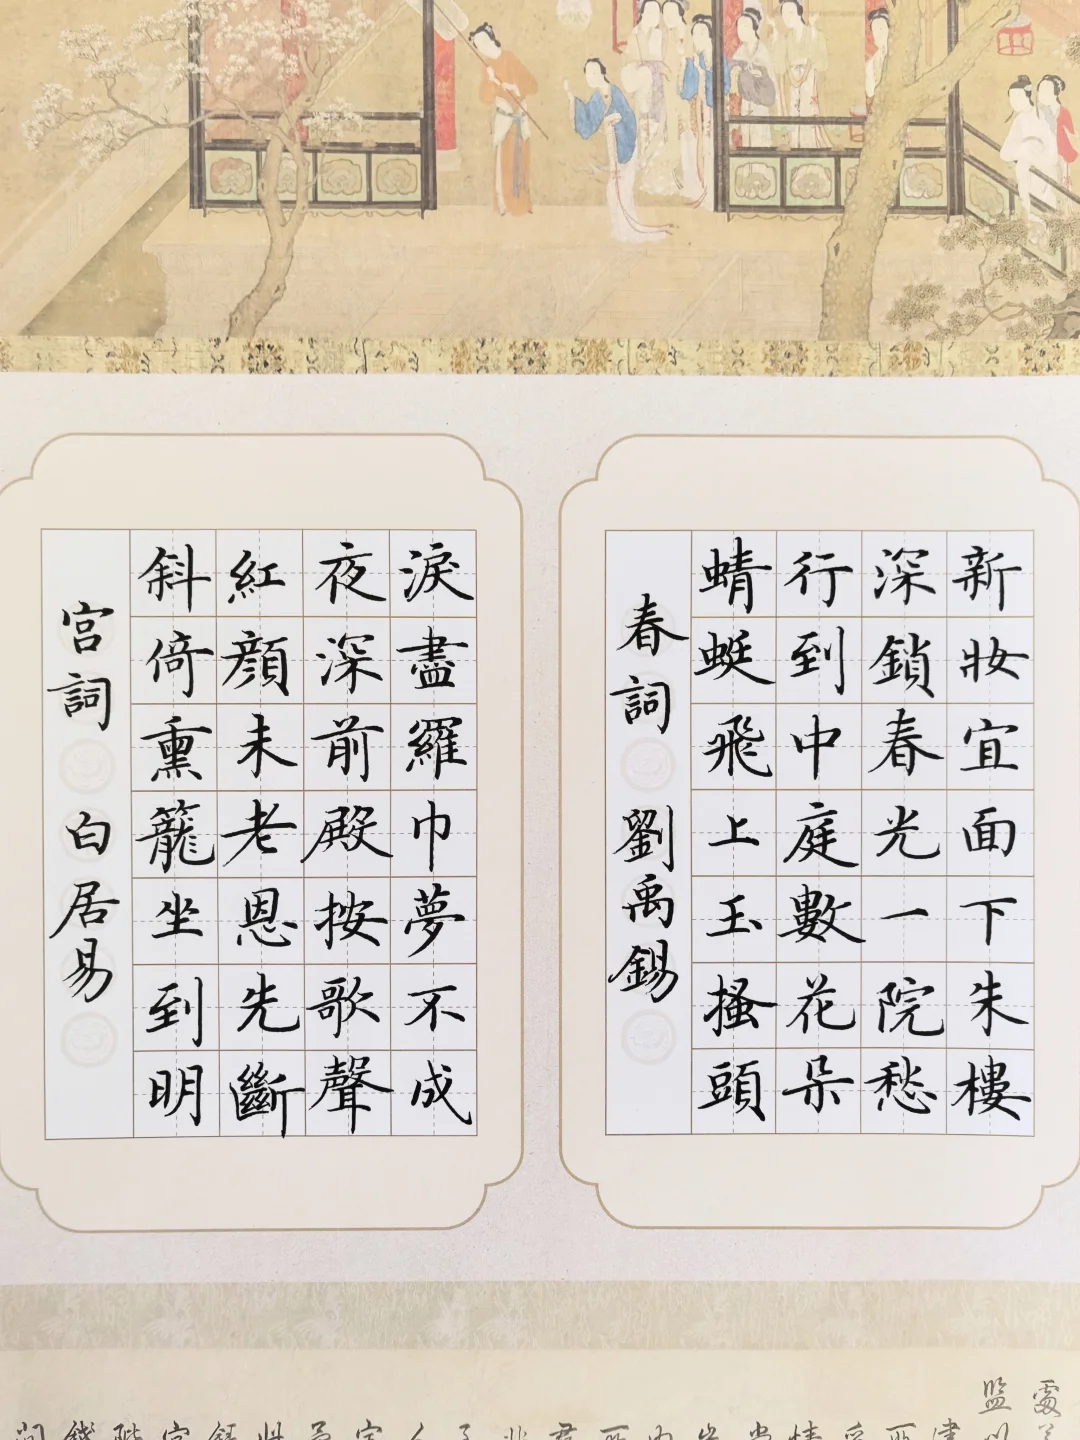 新妝宜面下朱樓
深鎖春光一院愁
行到中庭數花朵
蜻蜓飛上玉搔頭
春詞 劉禹錫
淚盡羅巾夢不成
夜深前殿按歌聲
紅顏未老恩先斷
斜倚熏籠坐到明
宮詞 白居易